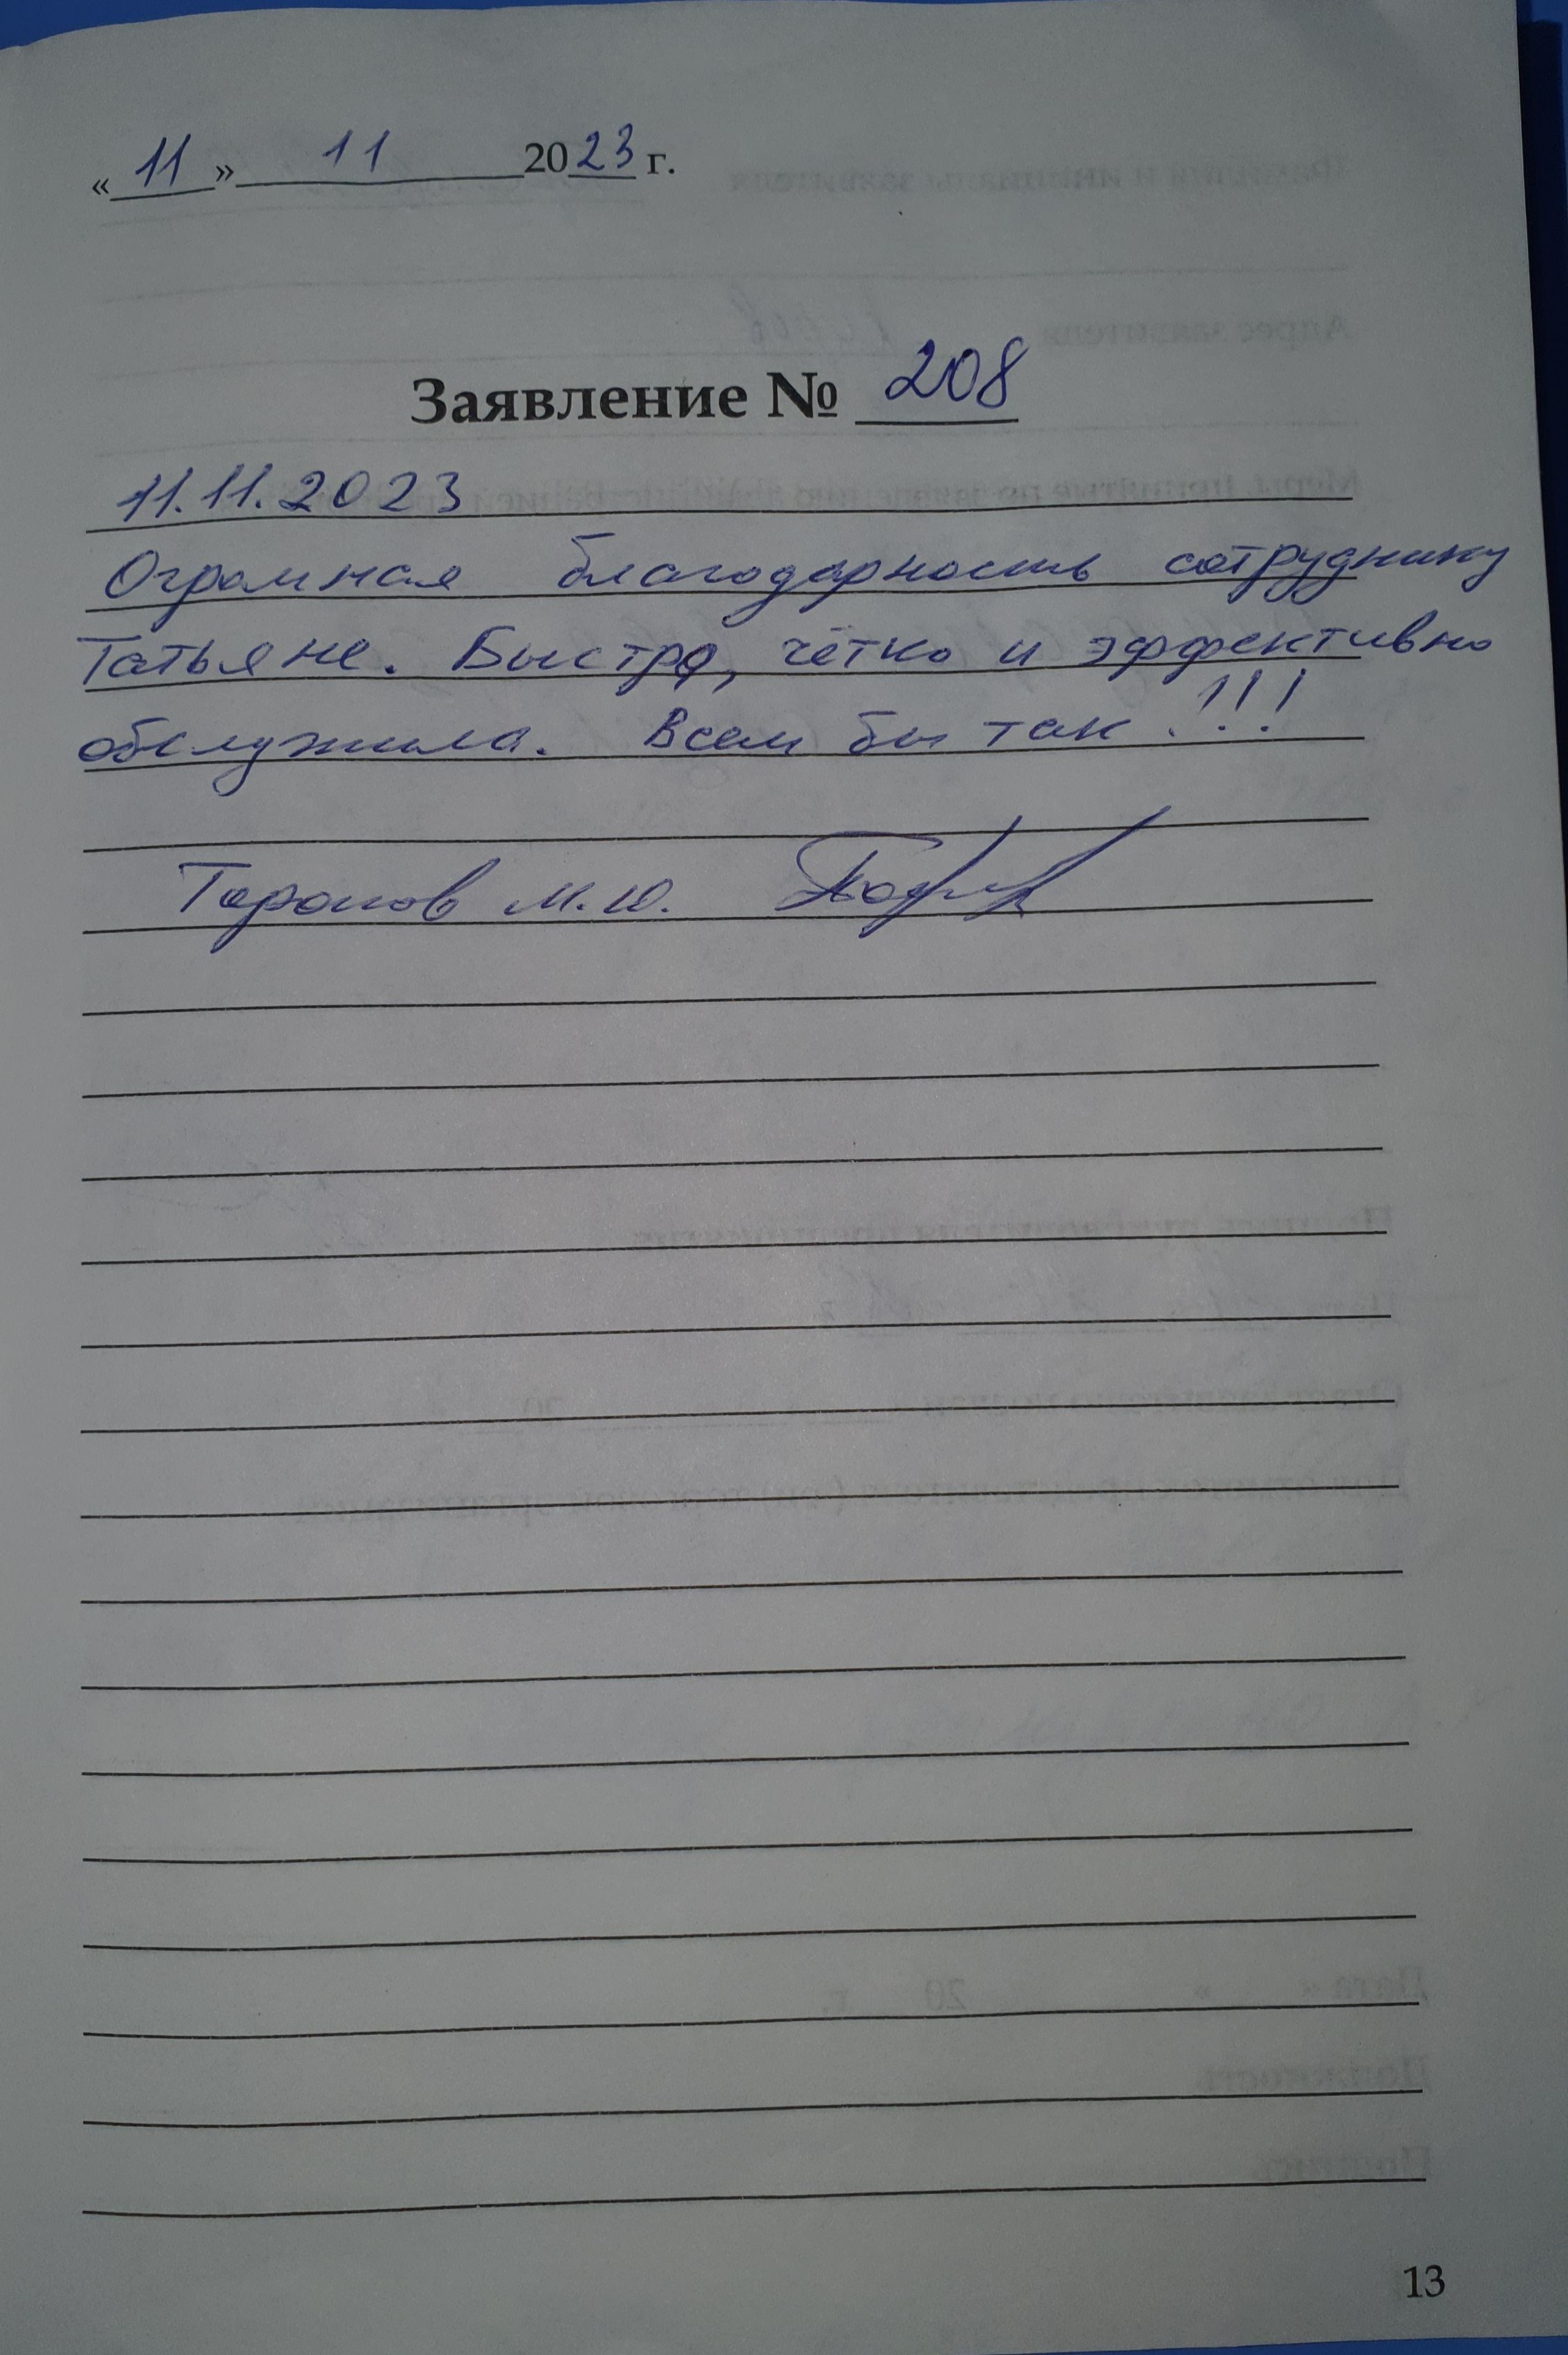 «11» 11 2023 г.
Заявление № 208
11.11.2023
Огромная благодарность сотруднику
Татьяне. Быстро, чётко и эффективно
обслужила. Всем бы так!!!
М.Ю.
13